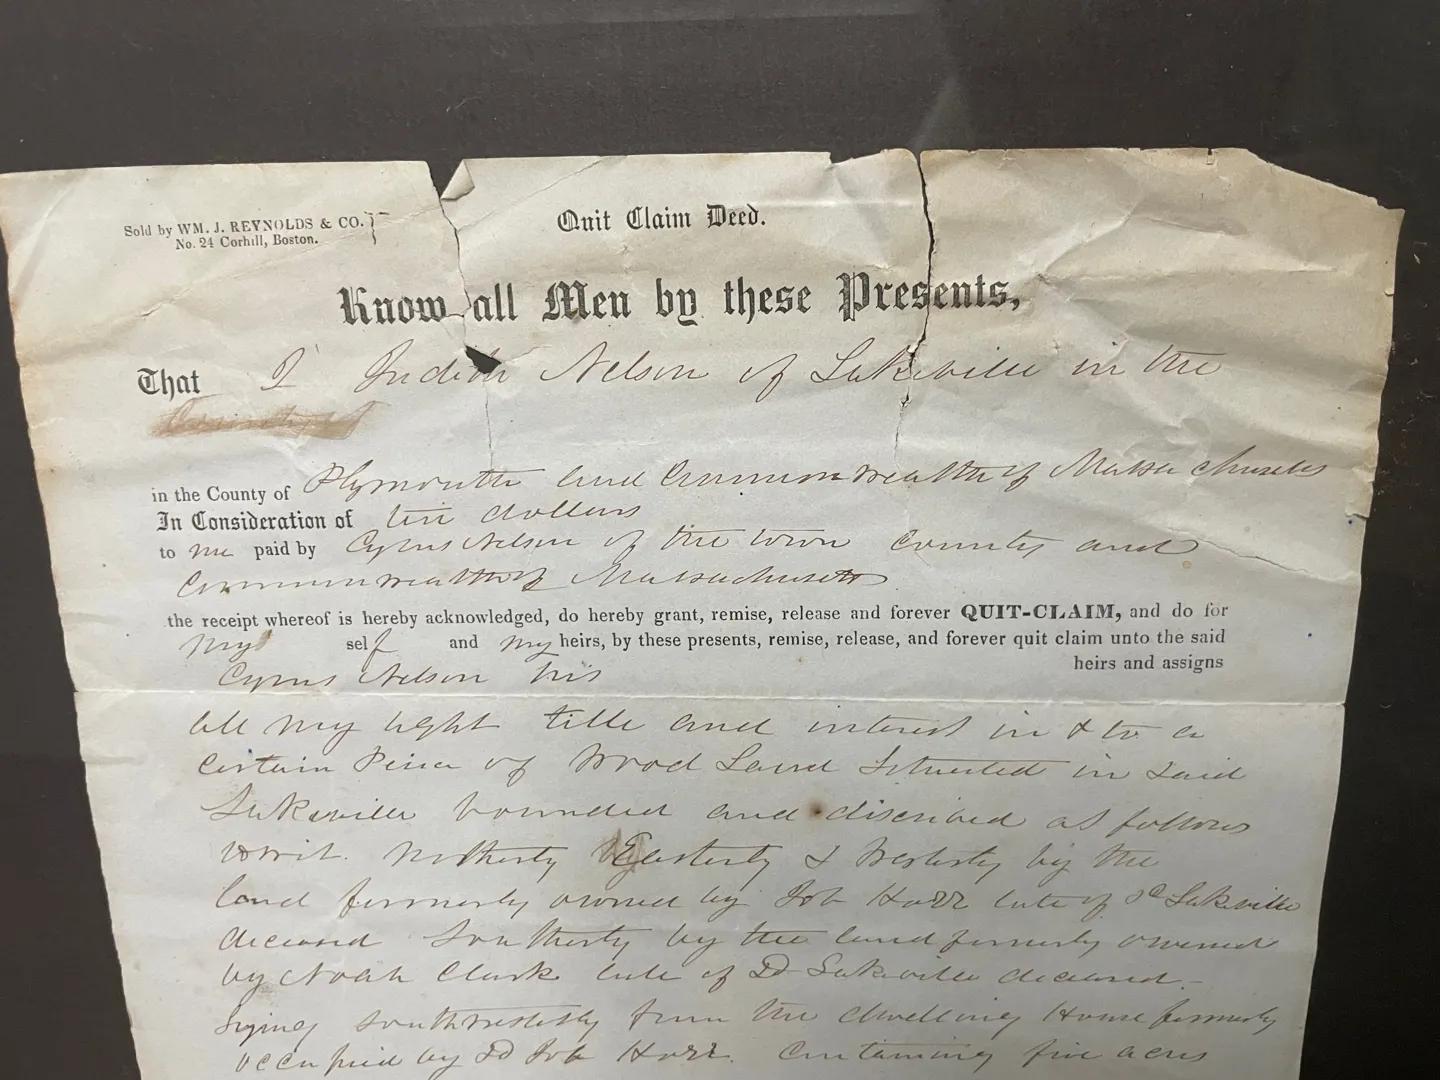 Sold by WM. J. REYNOLDS & CO.
No. 24 Corhill, Boston.
Quit Claim Deed.
Know all Men by these Presents,
That I Judith Nelson of Lakeville in the
in the County of Plymouth and Commonwealth of Massachusetts
In Consideration of ten dollars
to me paid by Cyrus Nelson of the town County and
Commonwealth of Massachusetts
the receipt whereof is hereby acknowledged, do hereby grant, remise, release and forever QUIT-CLAIM, and do for
my self and my heirs, by these presents, remise, release, and forever quit claim unto the said
Cyrus Nelson his heirs and assigns
all my right title and interest in & to a
certain Piece of Wood Land Situated in said
Lakeville bounded and discribed as follows
towit. Northerly Easterly & Westerly by the
land formerly owned by Job Horr late of sd Lakeville
deceased Southerly by the land formerly owned
by Noah Clark late of Sd Lakeville deceased.
lying southwesterly from the dwelling House formerly
occupied by Sd Job Horr. Containing five acres